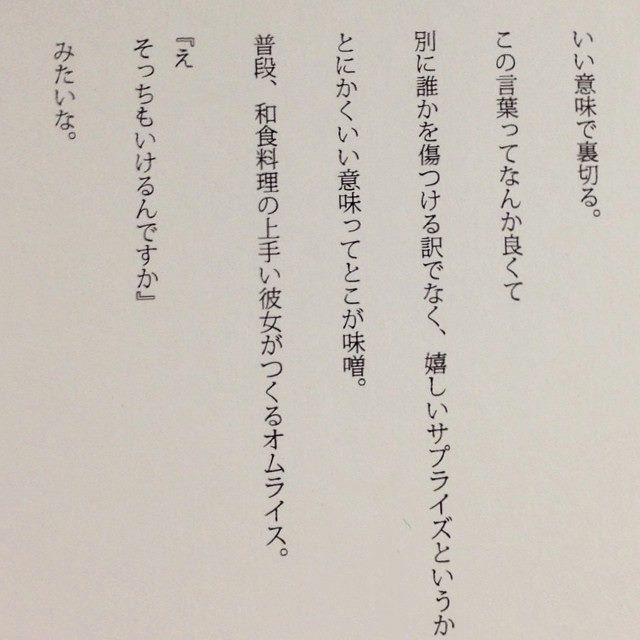 いい意味で裏切る。
この言葉ってなんか良くて
別に誰かを傷つける訳でなく、嬉しいサプライズというか
とにかくいい意味ってとこが味噌。
普段、和食料理の上手い彼女がつくるオムライス。
『え
そっちもいけるんですか』
みたいな。